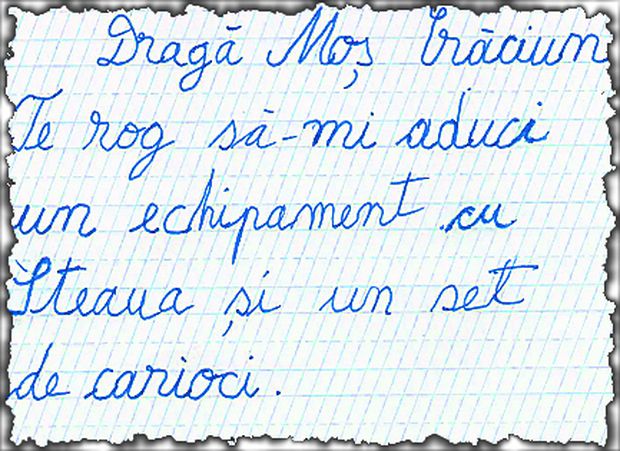 Dragă Moș Crăciun
Te rog să-mi aduci
un echipament cu
Steaua și un set
de carioci.